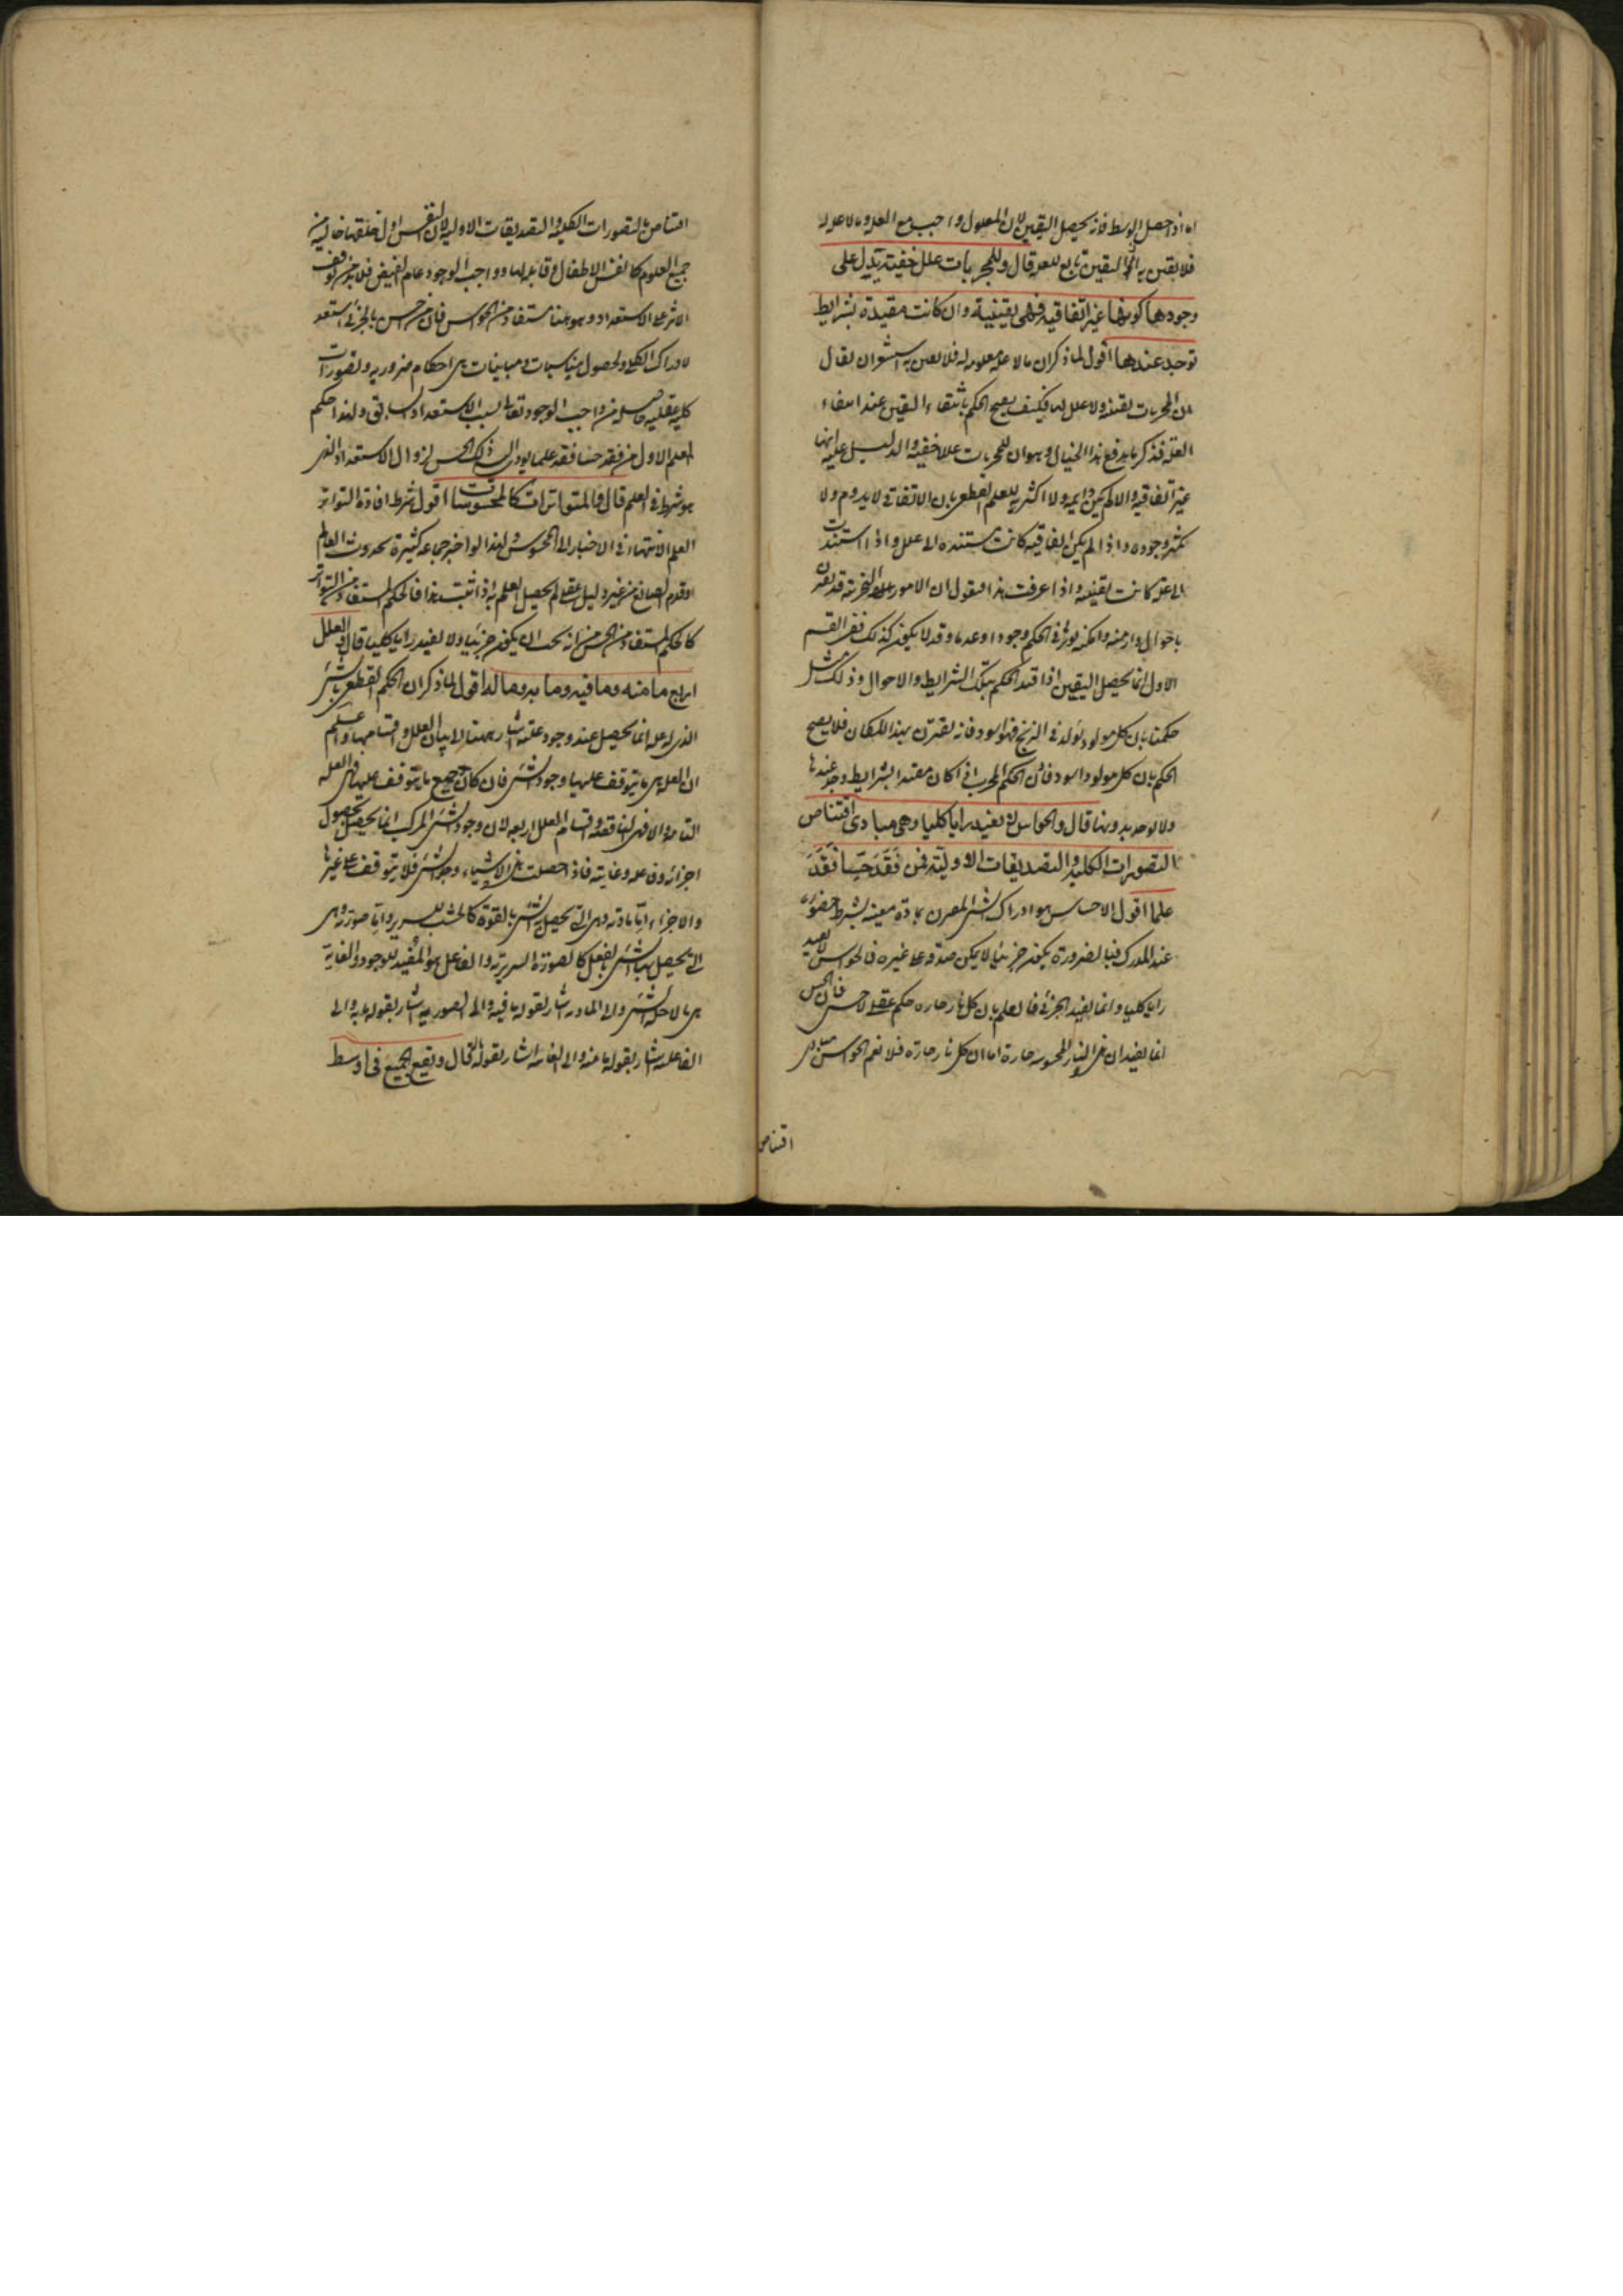 اما اذا حصل الوسط فانه يحصل اليقين لان المعلول واجب مع العلة وما لا علة له
فلا يقين به اذ اليقين تابع للعلة قال وللمجربات علل خفية يدل على
وجودها كونها غير اتفاقية فهي يقينية وان كانت مقيدة بشرايط
توجد عندها اقول لما ذكر ان ما لا علة معلومة له فلا يقين به استشعر ان يقال
ان المجربات يقينية ولا علل لها فكيف يصح الحكم بانتفاء اليقين عند انتفاء
العلة فذكر ما يدفع هذا الخيال وهو ان للمجربات عللا خفية والدليل عليه انها
غير اتفاقية والا لم يكن دايمة ولا اكثرية للعلم القطعي بان الاتفاقي لا يدوم ولا
يكثر وجوده واذا لم يكن اتفاقية كانت مستندة الى علل واذا استندت
الى علة كانت يقينية واذا عرفت هذا فنقول ان الامور التجربية قد يقترن
باحوال وازمنة وامكنة يؤثر في الحكم وجودا وعدما وقد لا يكون كذلك ففي القسم
الاول انما يحصل اليقين اذا قيد الحكم بتلك الشرايط والاحوال وذلك مثل
حكمنا بان كل مولود يولد في الزنج فهو اسود فانه يقترن بهذا المكان فلا يصح
الحكم بان كل مولود اسود فاذن الحكم المجرب اذا كان مقيد الشرايط وجد عندها
ولا يوجد بدونها قال والحواس لا تفيد رايا كليا وهي مبادي اقتناص
التصورات الكلية والتصديقات الاولية فمن فقد حسا فقد
علما اقول الاحساس هو ادراك الشيء المقترن بمادة معينة بشرط حضوره
عند المدرك فبالضرورة يكون جزئيا لا يمكن صدقه على غيره فالحواس لا يفيد
رايا كليا وانما يفيد الجزئي فالعلم بان كل نار حارة حكم عقلي لا حسي فان الحس
انما يفيد ان هذه النار المحسوسة حارة اما ان كل نار حارة فلا نعم الحواس مبادي
اقتناص
اقتناص التصورات الكلية والتصديقات الاولية لان النفس اول خلقتها خالية من
جميع العلوم كانفس الاطفال وقابلة لها وواجب الوجود عام الفيض فلا بد من توقف
الاثر على الاستعداد وهو هنا مستفاد من الحواس فان من احس بالجزئي استعد
لادراك الكلي ولحصول مناسبات ومباينات هي احكام ضرورية وتصورات
كلية عقلية حاصلة من واجب الوجود تعالى بسبب الاستعداد السابق ولهذا حكم
المعلم الاول من فقد حسا فقد علما يؤدي اليه ذلك الحس لزوال الاستعداد الذي
هو شرط في العلم قال والمتواترات كالمحسوسات اقول شرط افادة التواتر
العلم الانتهاء في الاخبار الى المحسوس ولهذا لو اخبر جماعة كثيرة بحدوث العالم
او قدم الصانع من غير دليل عقلي لم يحصل العلم به اذا ثبت هذا فالحكم المستفاد من التواتر
كالحكم المستفاد من الحس من انه يجب ان يكون جزئيا ولا يفيد رايا كليا قال والعلل
اربع ما منه وما فيه وما به وما له اقول لما ذكر ان الحكم القطعي بالشيء
الذي له علة انما يحصل عند وجود علته اشار ههنا الى بيان العلل واقسامها واعلم
ان العلة هي ما يتوقف عليها وجود الشيء فان كان جميع ما يتوقف عليها فهي العلة
التامة والا فهي الناقصة واقسام العلل اربعة لان وجود الشيء المركب انما يحصل بحصول
اجزائه وفاعله وغايته فاذا حصلت هذه الاشياء وجد الشيء فلا يتوقف على غيرها
والاجزاء اما مادته وهي التي يحصل بها الشيء بالقوة كالخشب للسرير واما صورته وهي
التي يحصل بها الشيء بالفعل كالصورة السريرية والفاعل هو المفيد للوجود والغاية
هي ما لاجله الشيء والى المادة اشار بقوله ما فيه والى الصورية اشار بقوله ما به والى
الفاعلية اشار بقوله ما منه والى الغاية اشار بقوله ما له قال ويقع الجميع في اوسط